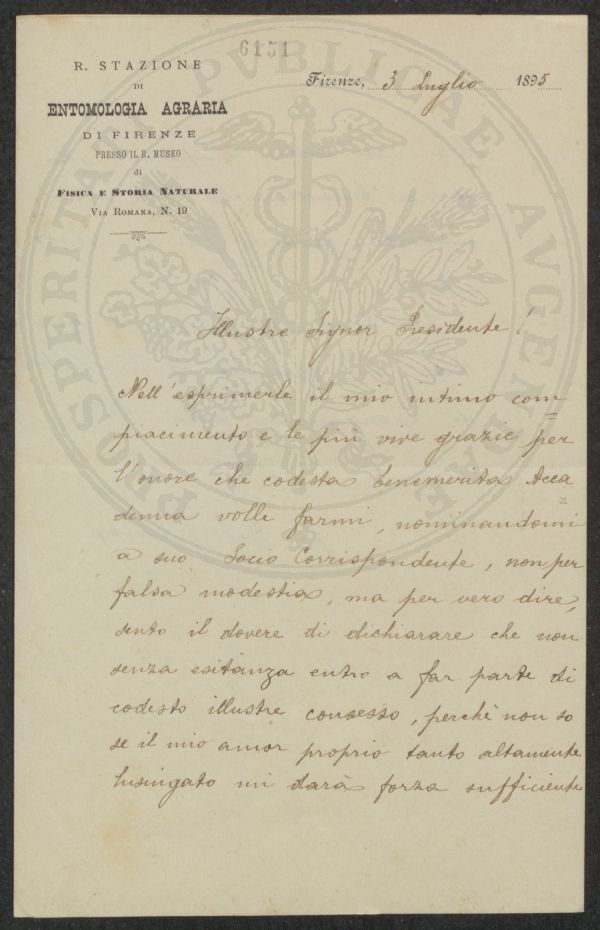 6151
R. STAZIONE
DI
ENTOMOLOGIA AGRARIA
DI FIRENZE
PRESSO IL R. MUSEO
di
FISICA E STORIA NATURALE
VIA ROMANA, N. 19
Firenze, 3 Luglio 1895
PROSPERITATI PVBLICAE AVGENDAE
Illustre Signor Presidente!
Nell'esprimerle il mio intimo com=
piacimento e le più vive grazie per
l'onore che codesta benemerita Acca=
demia volle farmi, nominandomi
a suo Socio Corrispondente, non per
falsa modestia, ma per vero dire,
sento il dovere di dichiarare che non
senza esitanza entro a far parte di
codesto illustre consesso, perchè non so
se il mio amor proprio tanto altamente
lusingato mi darà forza sufficiente